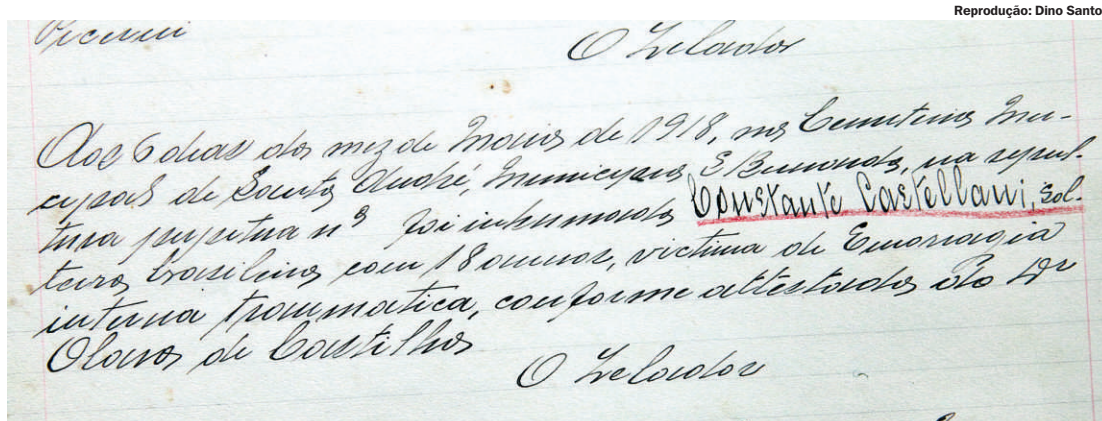 Reprodução: Dino Santo
O Zelador
Aos 6 dias do mez de Maio de 1918, no Cemiterio Mu-
cipal de Santo André, Municipio S. Bernardo, na sepul-
tura perpetua nº foi inhumado Constante Castellani, sol-
teiro, brasileiro, com 18 annos, victima de Emorragia
interna traumatica, conforme attestado do Dr
Olavo de Castilho
O Zelador